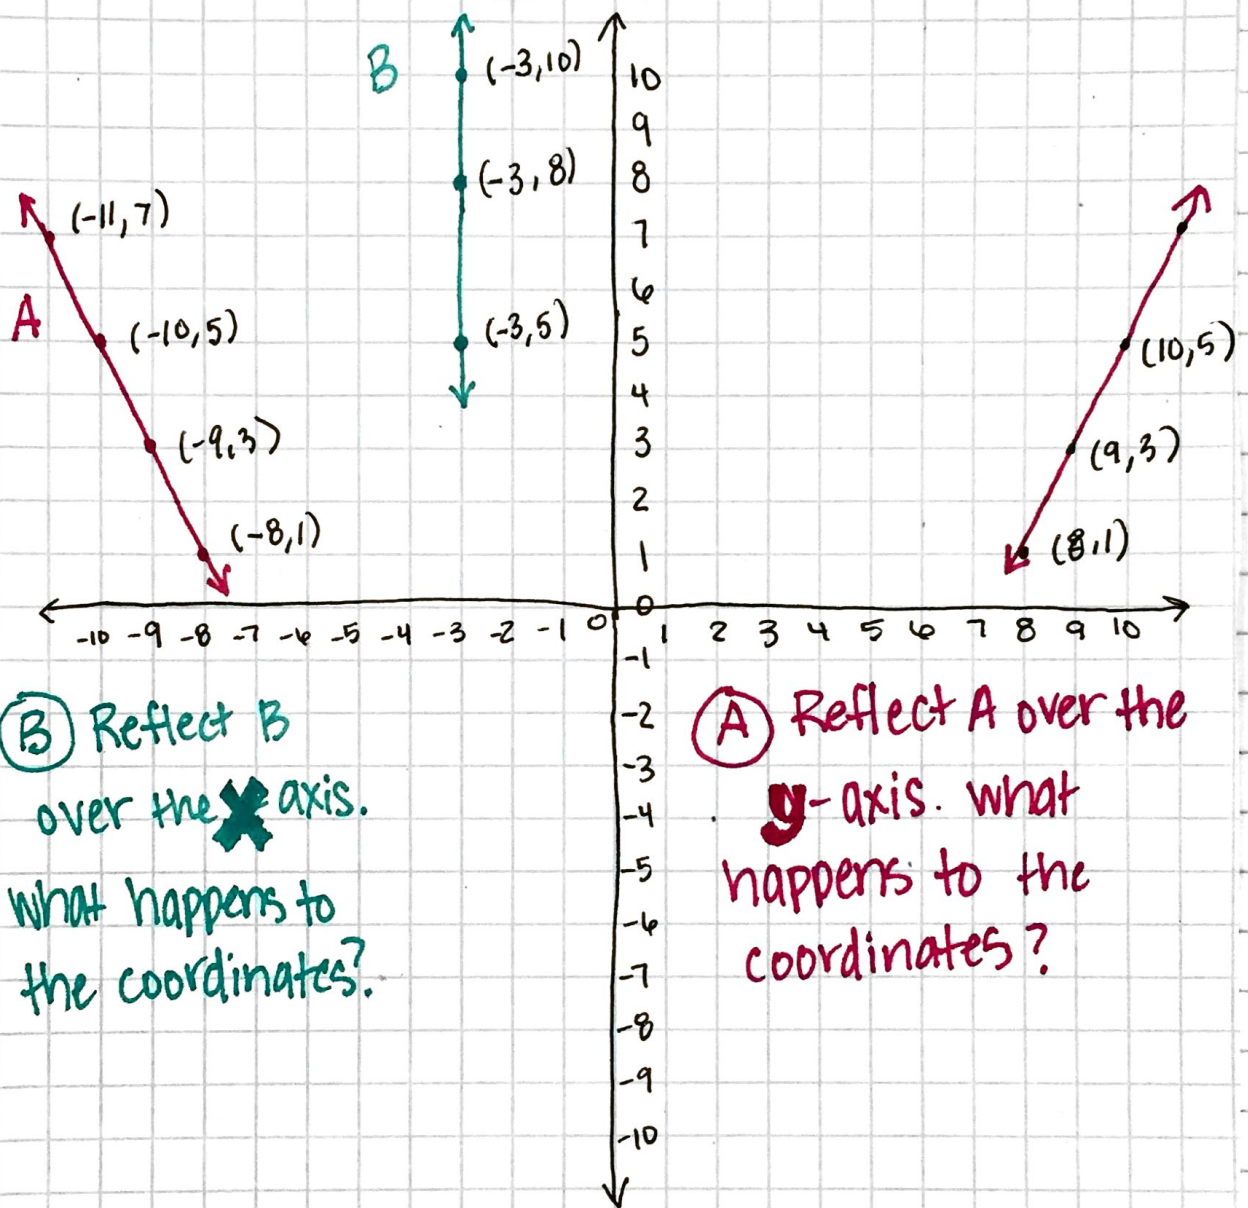 B
(-3,10)
(-3,8)
(-3,5)
10
9
8
7
6
5
4
3
2
1
0
(-11,7)
A
(-10,5)
(-9,3)
(-8,1)
(10,5)
(9,3)
(8,1)
-10 -9 -8 -7 -6 -5 -4 -3 -2 -1 0 1 2 3 4 5 6 7 8 9 10
-1
-2
-3
-4
-5
-6
-7
-8
-9
-10
B Reflect B
over the X axis.
what happens to
the coordinates?
A Reflect A over the
y-axis. what
happens to the
coordinates?